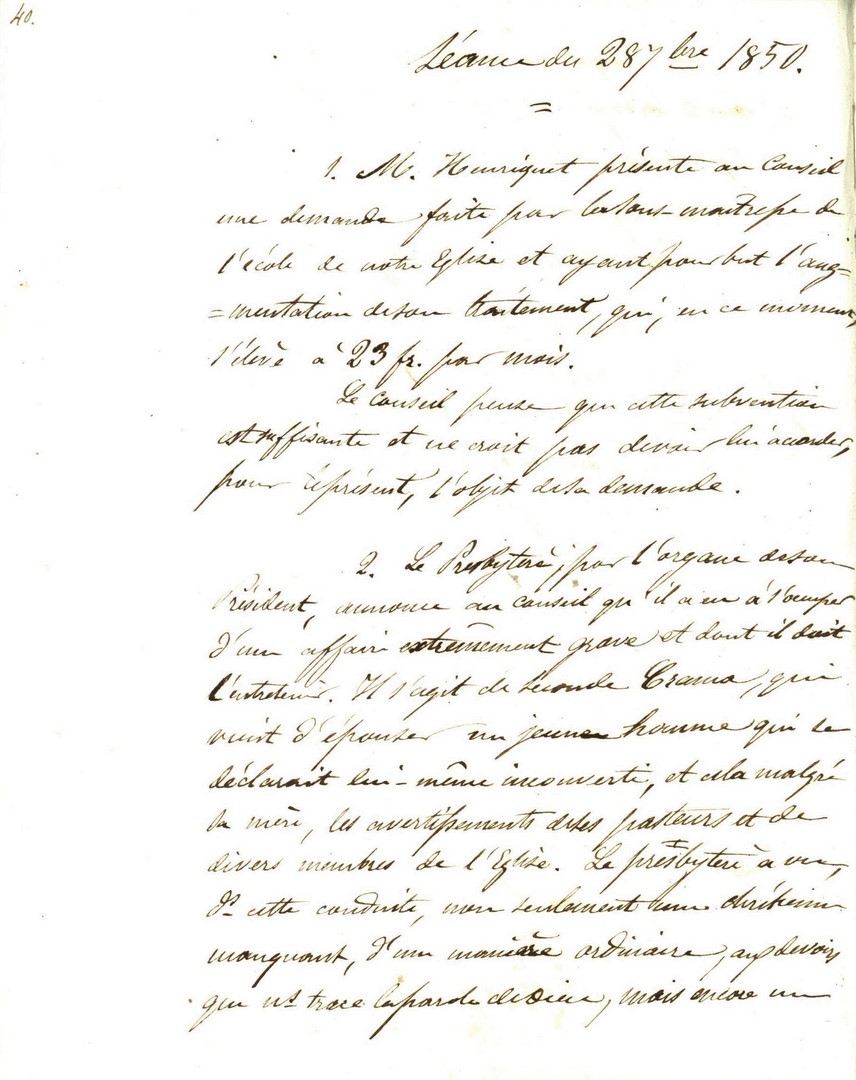 40.
Séance du 28 7bre 1850.
=
1. M. Henriquet présente au Conseil
une demande faite par la sous-maitresse de
l'école de notre Eglise et ayant pour but l'aug=
=mentation de son traitement, qui, en ce moment,
s'élève à 23 fr. par mois.
Le conseil pense que cette subvention
est suffisante et ne croit pas devoir lui accorder,
pour le présent, l'objet de sa demande.
2. Le Presbytère, par l'organe de son
Président, annonce au conseil qu'il a eu à s'occuper
d'une affaire extrêmement grave et dont il doit
l'entretenir. Il s'agit de seconde, qui
vient d'épouser un jeune homme qui se
déclarait lui-même inconverti, et cela malgré
sa mère, les avertissements de ses pasteurs et de
divers membres de l'Eglise. Le presbytère a vu,
ds cette conduite, non seulement une chrétienne
manquant, d'une manière ordinaire, aux devoirs
que ns trace la parole de Dieu, mais encore un